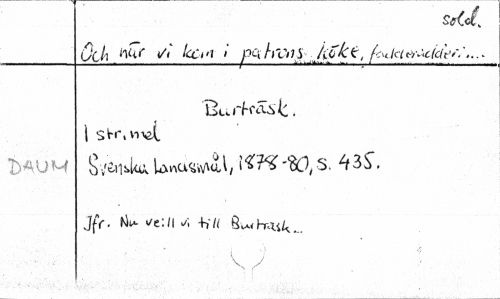 sold.
Och när vi kom i patrons köke, fadderadderi...
Burträsk.
1 str. mel
DAUM
Svenska Landsmål, 1878-80, s. 435.
Jfr. Nu ve:ll vi till Burträsk...